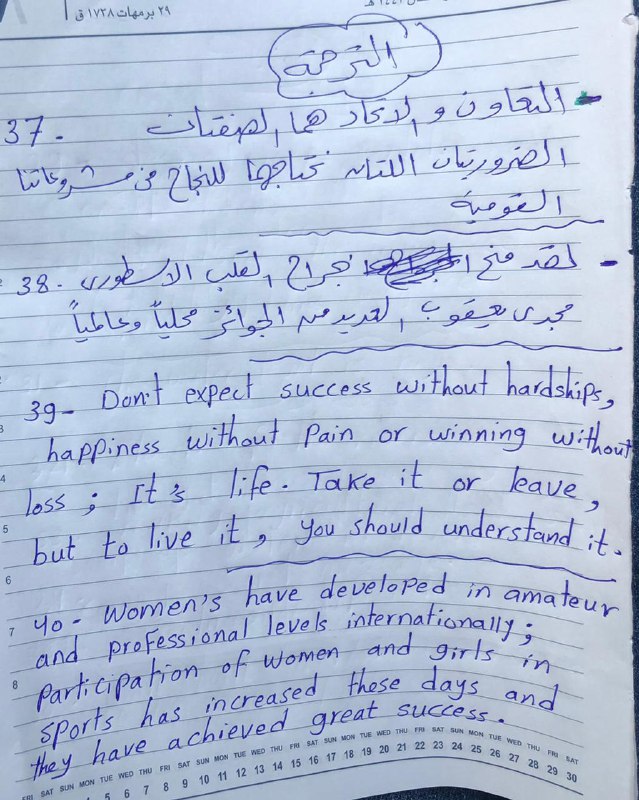 ٢٩ برمهات ١٧٢٨ ق
الترجمة
37. - التعاون والاتحاد هما الصفتان
الضروريتان اللتان نحتاجها للنجاح فى مشروعاتنا
القومية
38. - لقد منح جراح القلب الأسطورى
مجدى يعقوب العديد من الجوائز محلياً وعالمياً
39- Don't expect success without hardships,
happiness without Pain or winning without
loss; It's life. Take it or leave,
but to live it, you should understand it.
40- Women's have developed in amateur
and professional levels internationally;
Participation of women and girls in
sports has increased these days and
they have achieved great success.
FRI SAT SUN MON TUE WED THU FRI SAT SUN MON TUE WED THU FRI SAT SUN MON TUE WED THU FRI SAT SUN MON TUE WED THU FRI SAT
5 6 7 8 9 10 11 12 13 14 15 16 17 18 19 20 21 22 23 24 25 26 27 28 29 30